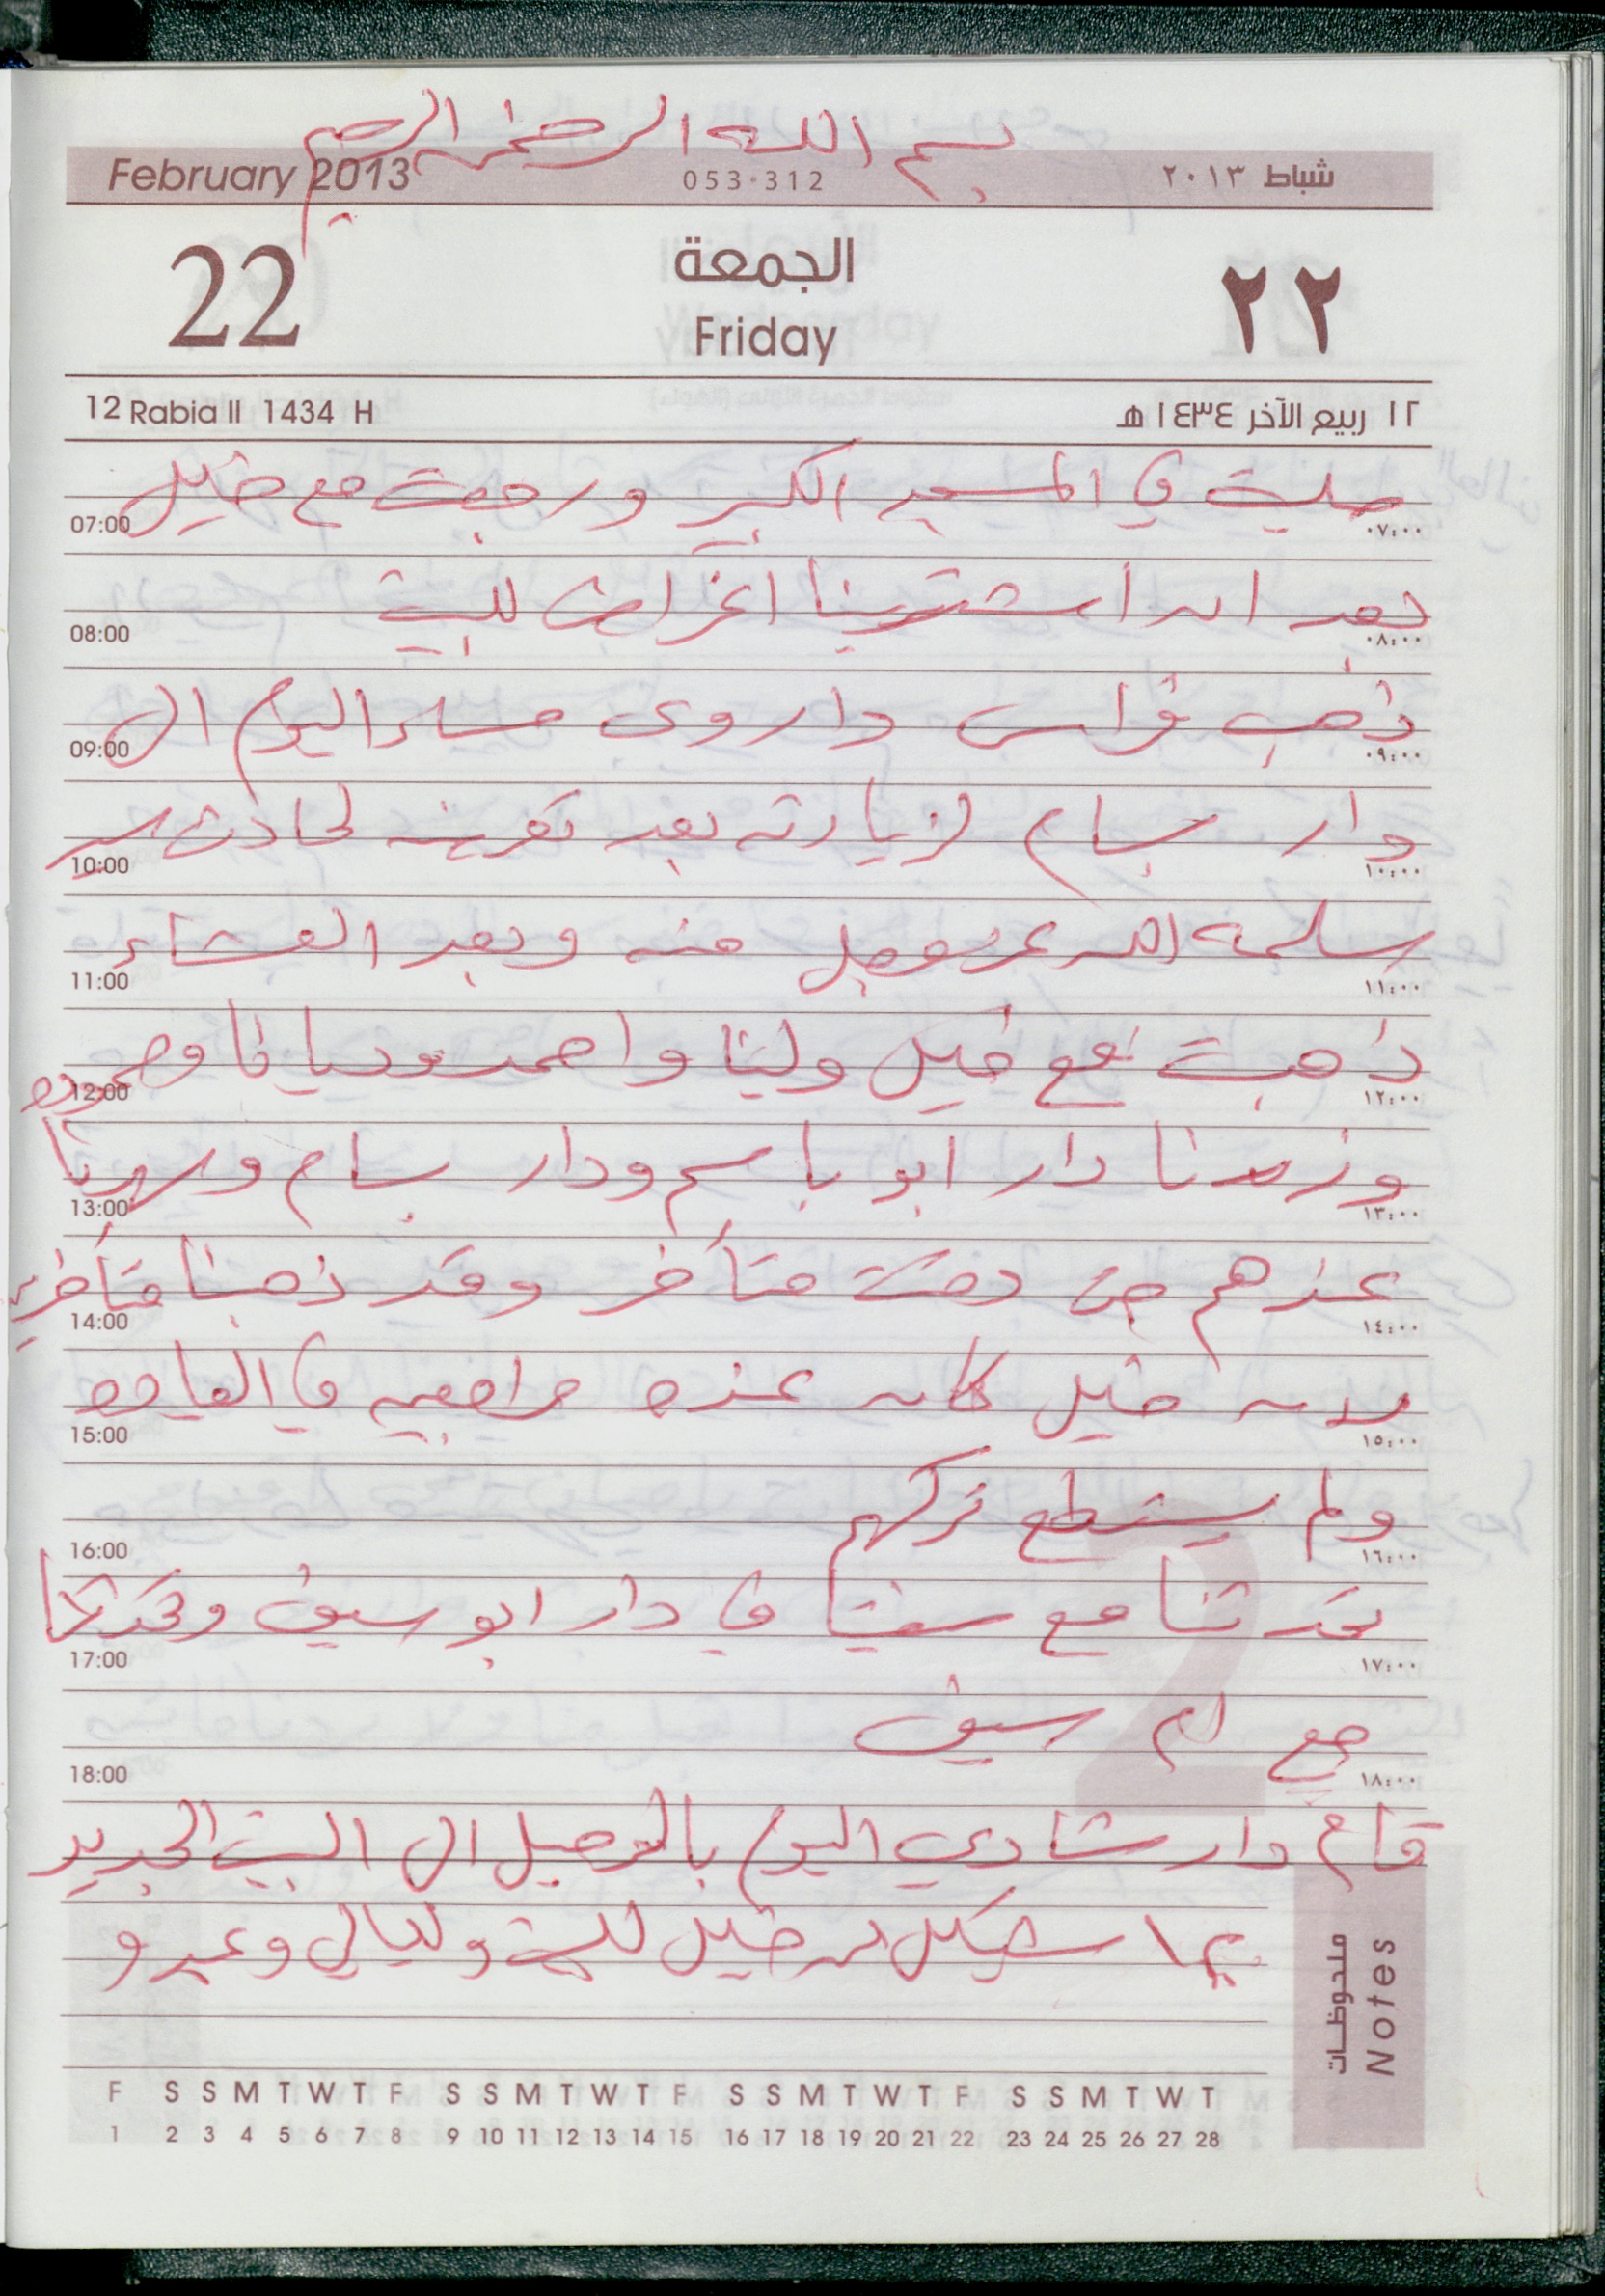 بسم الله الرحمن الرحيم
February 2013 053-312 شباط ٢٠١٣
22 الجمعة ٢٢
Friday
12 Rabia II 1434 H ١٢ ربيع الآخر ١٤٣٤ هـ
صليت في المسجد الكبير ورجعت مع خليل
07:00 ٠٧:٠٠
بعد ان اشترينا اغراض للبيت
08:00 ٠٨:٠٠
ذهب فراس دار روى مساء اليوم الى
09:00 ٠٩:٠٠
دار بسام لزيارته بعد تعرضه لحادث سير
10:00 ١٠:٠٠
سلمه الله عز وجل منه وبعد العشاء
11:00 ١١:٠٠
ذهبت مع خليل ولينا واحمد وديانا
12:00 ١٢:٠٠
وزرنا دار ابو باسم ودار بسام وسهرنا
13:00 ١٣:٠٠
عندهم حتى وقت متأخر وقد ذهبنا متأخرين
14:00 ١٤:٠٠
لان خليل كان عنده مراجعين في العيادة
15:00 ١٥:٠٠
ولم يستطع تركهم
16:00 ١٦:٠٠
تحدثنا مع في دار ابو سيف وتحدثنا
17:00 ١٧:٠٠
مع ام سيف
18:00 ١٨:٠٠
قام دار شادي اليوم بالترحيل الى البيت الجديد
خليل للبيت وليالي وعمرو
ملحوظات
Notes
F S S M T W T F S S M T W T F S S M T W T F S S M T W T
1 2 3 4 5 6 7 8 9 10 11 12 13 14 15 16 17 18 19 20 21 22 23 24 25 26 27 28